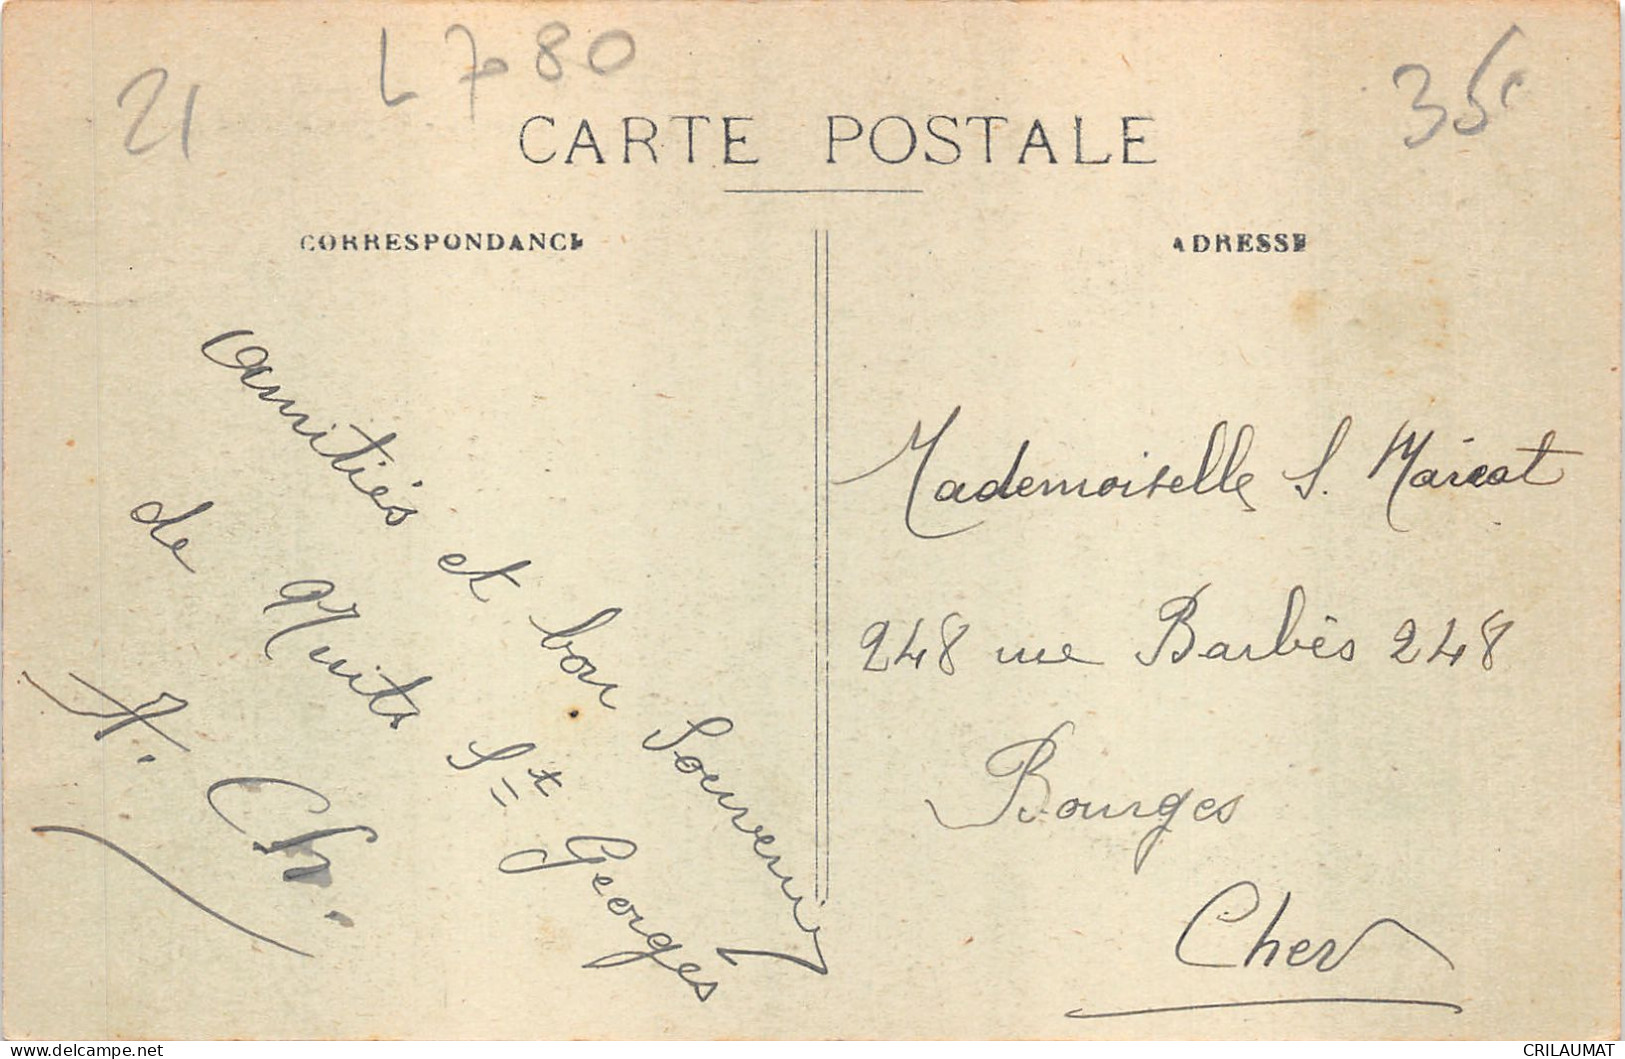 21
L 7 80
35
CARTE POSTALE
CORRESPONDANCE
ADRESSE
Amitiés et bon Souvenir
de Nuits St Georges
A. Ch.
Mademoiselle S. Marcat
248 rue Barbès 248
Bourges
Cher
CRILAUMAT